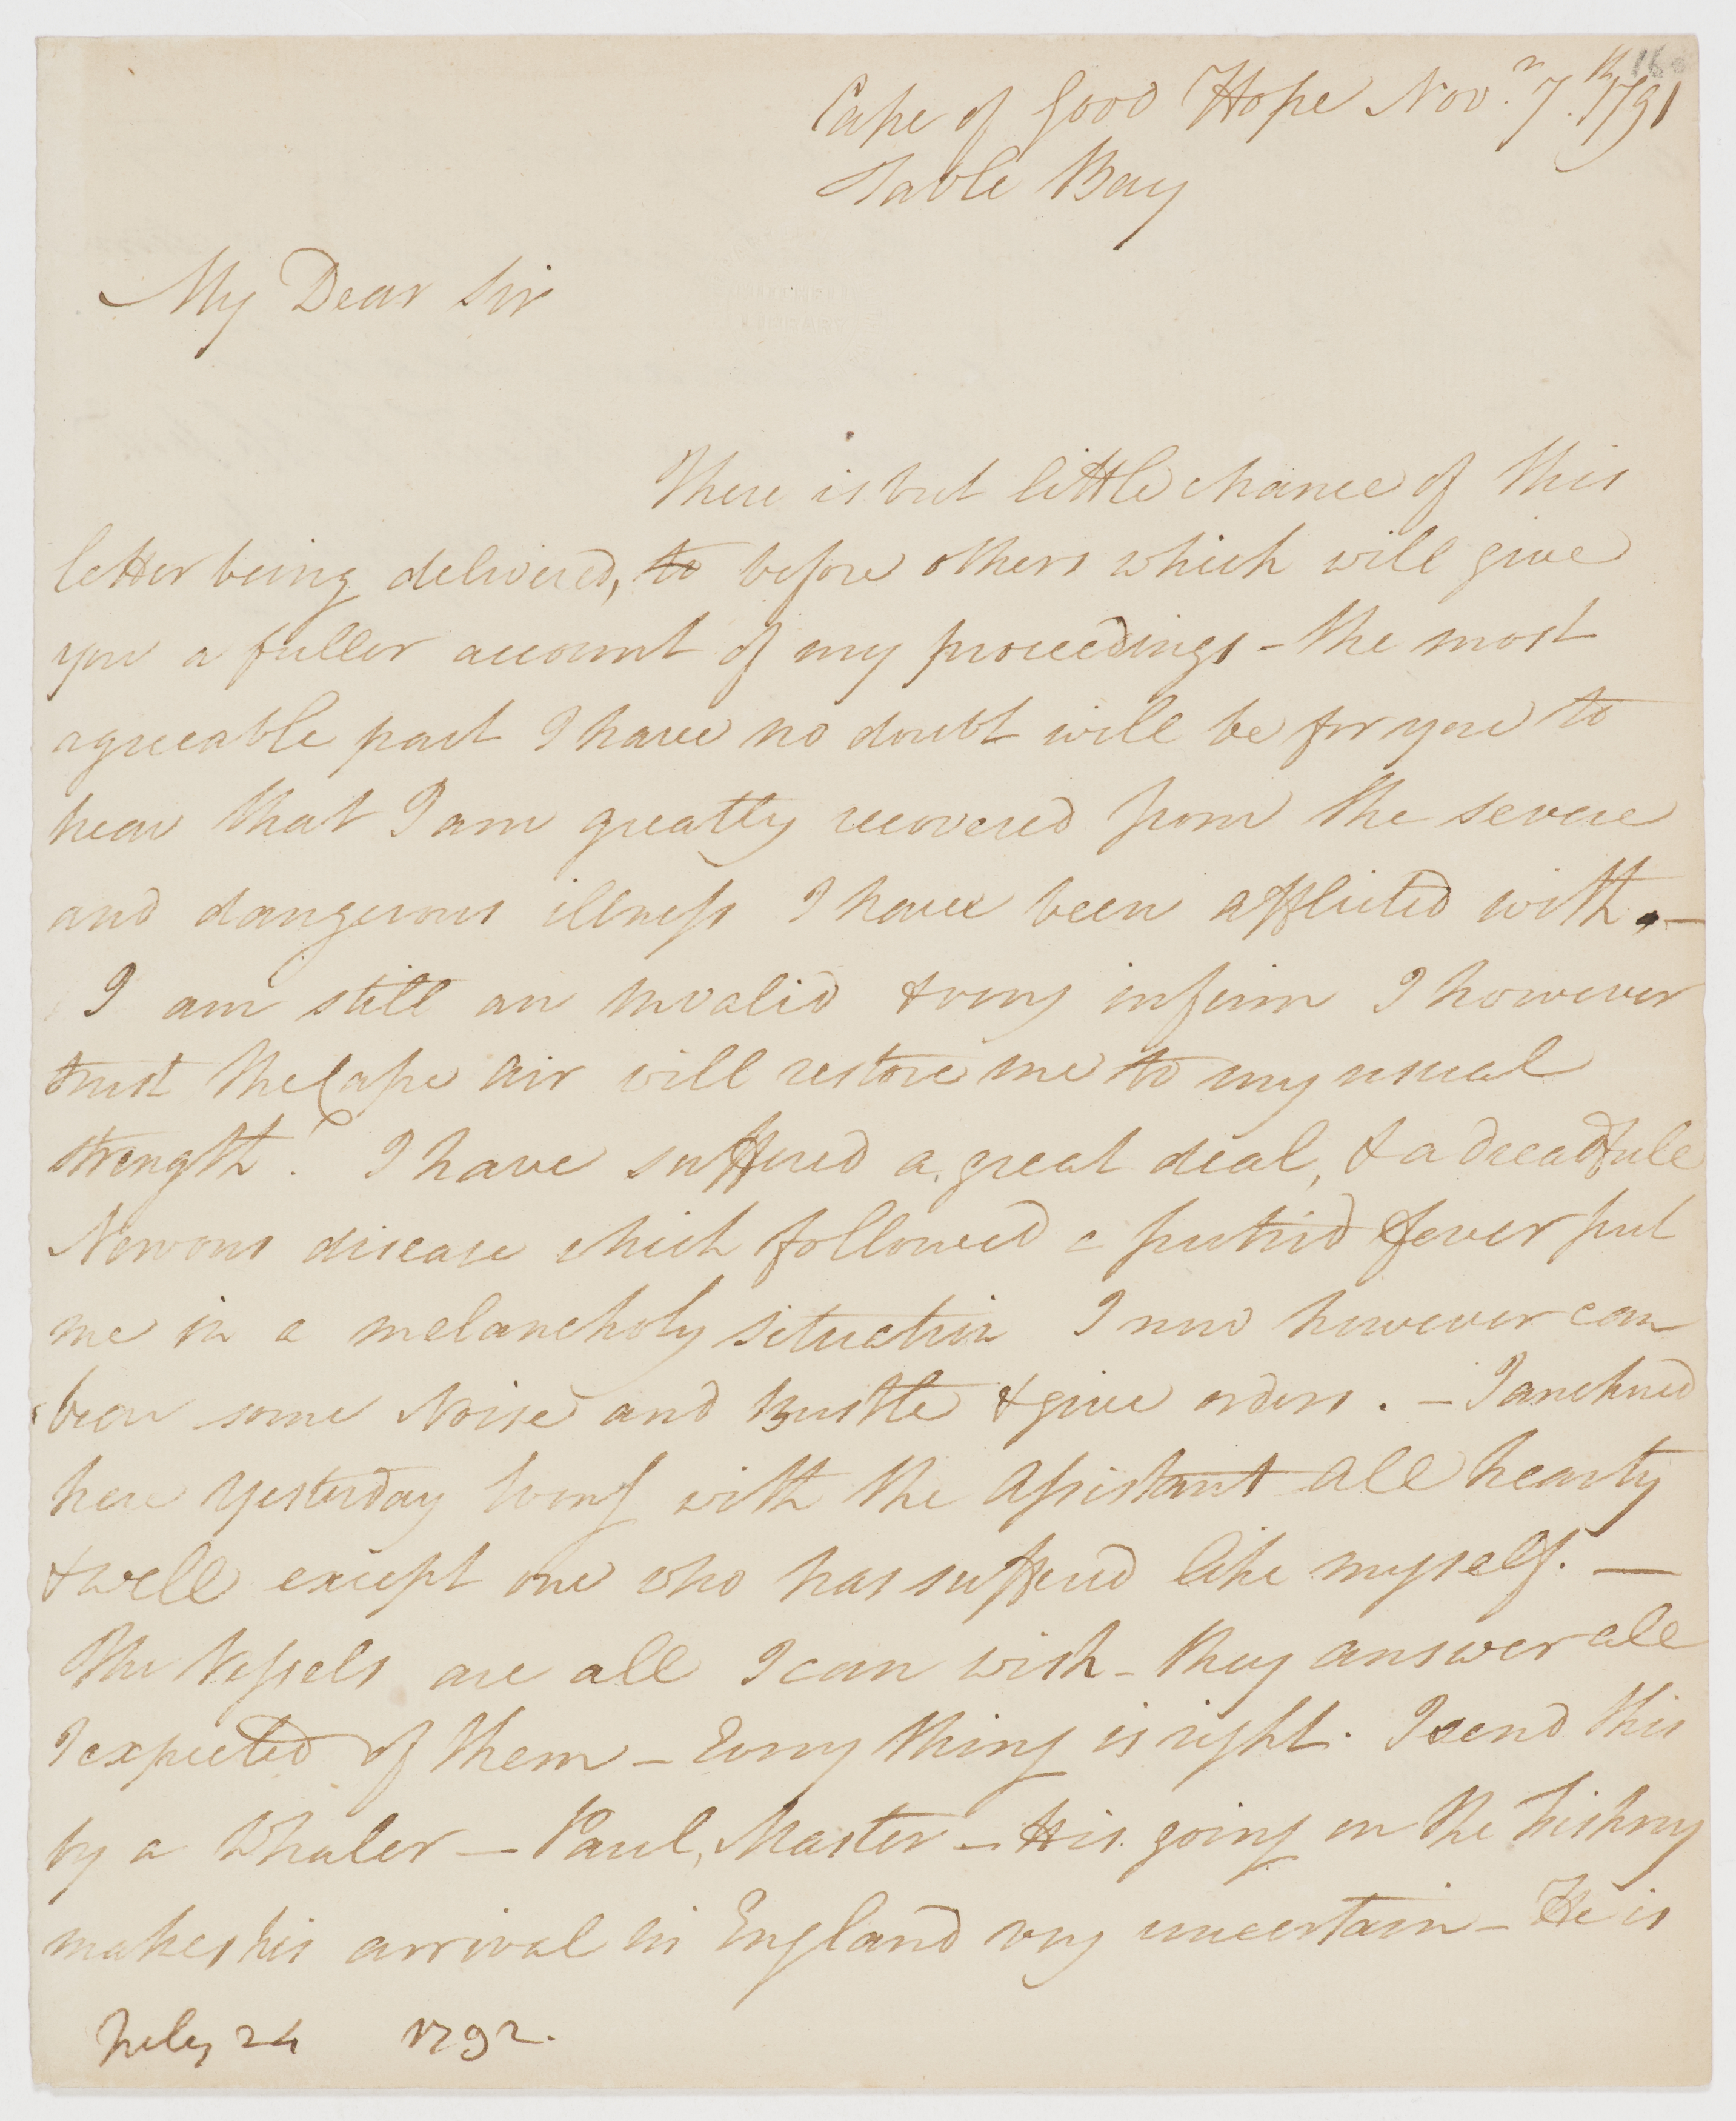 Cape of Good Hope Novr. 7th. 1791
Table Bay
My Dear Sir
There is but little chance of this
letter being delivered, to before others which will give
you a fuller account of my proceedings - the most
agreeable part I have no doubt will be for you to
hear that I am greatly recovered from the severe
and dangerous illness I have been afflicted with. —
I am still an invalid & very infirm I however
trust the Cape Air will restore me to my usual
strength. I have suffered a great deal, & a dreadfull
Nervous disease which followed a putrid fever put
me in a melancholy situation I now however can
bear some Noise and Bustle & give orders. — I anchored
here yesterday Eveng with the Assistant all hearty
& well except one who has suffered like myself. —
The Vessels are all I can wish - they answer all
I expected of them — Every thing is right. I send this
by a Whaler — Paul, Master — His going on the Fishery
makes his arrival in England very uncertain — He is
July 24 1792.